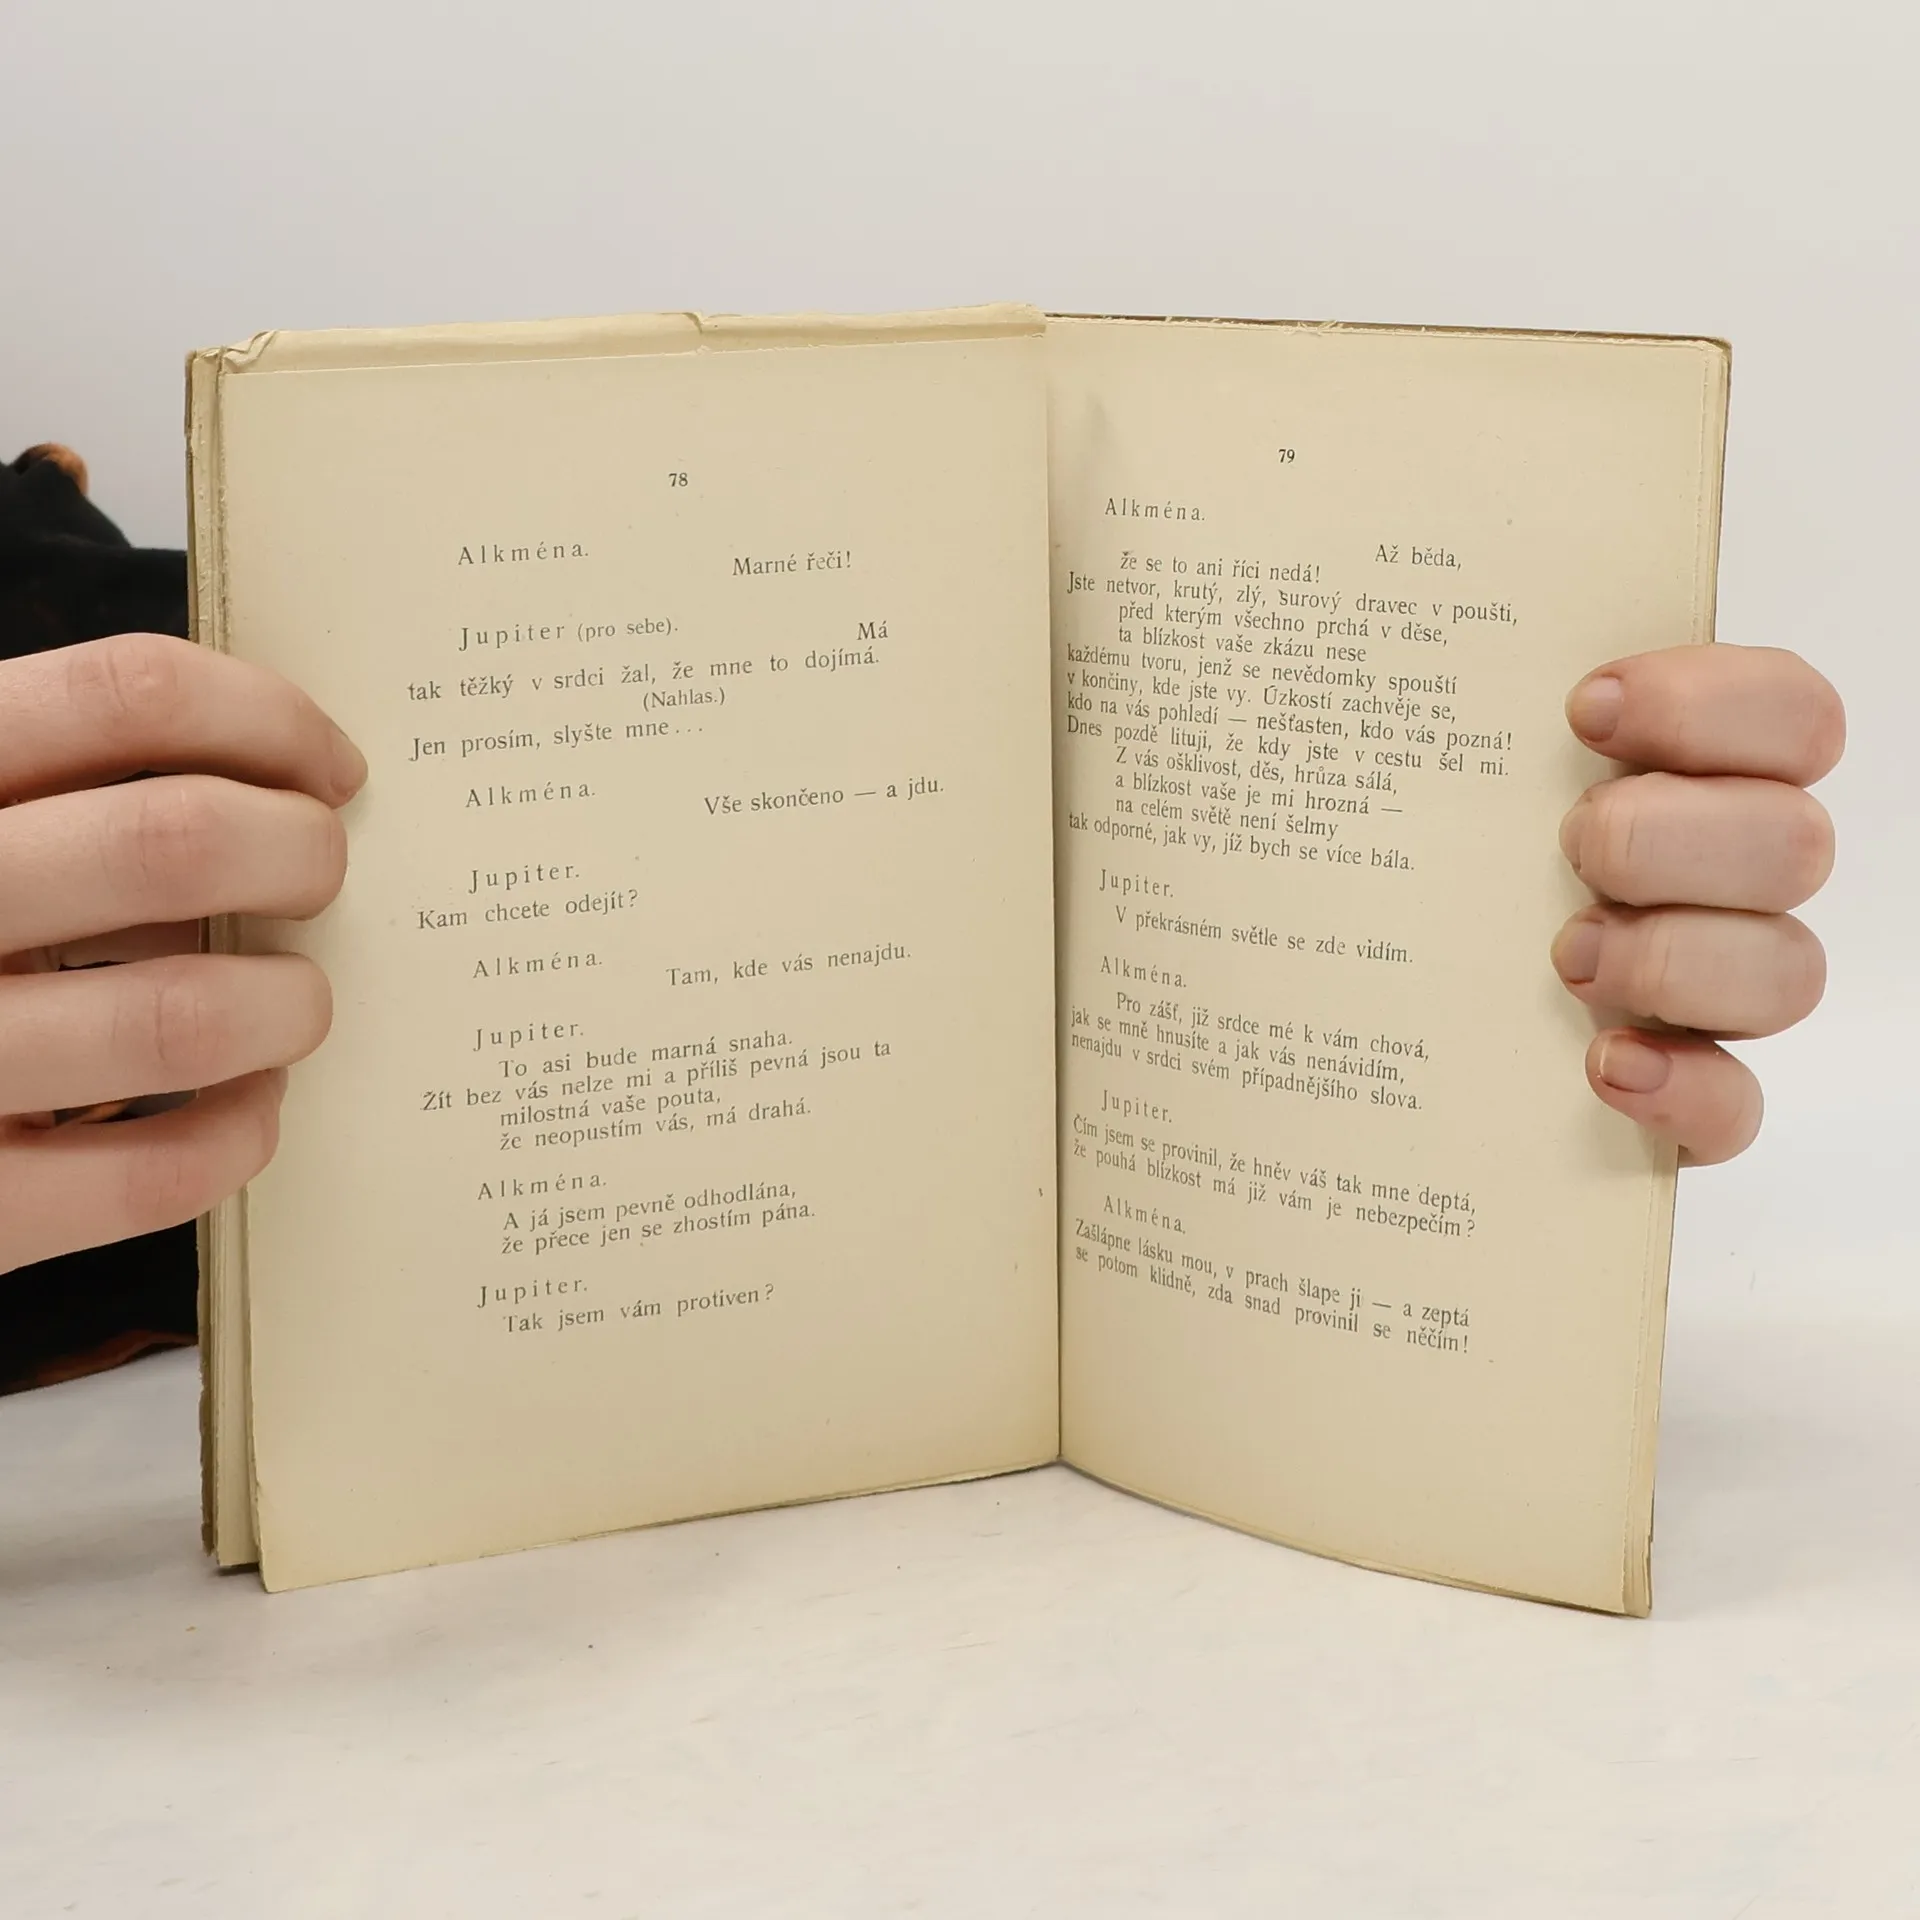 78
Alkména.
Marné řeči!
Jupiter (pro sebe).
Má
tak těžký v srdci žal, že mne to dojímá.
(Nahlas.)
Jen prosím, slyšte mne...
Alkména.
Vše skončeno — a jdu.
Jupiter.
Kam chcete odejít?
Alkména.
Tam, kde vás nenajdu.
Jupiter.
To asi bude marná snaha.
Žít bez vás nelze mi a příliš pevná jsou ta
milostná vaše pouta,
že neopustím vás, má drahá.
Alkména.
A já jsem pevně odhodlána,
že přece jen se zhostím pána.
Jupiter.
Tak jsem vám protiven?
79
Alkména.
Až běda,
že se to ani říci nedá!
Jste netvor, krutý, zlý, surový dravec v poušti,
před kterým všechno prchá v děse,
ta blízkost vaše zkázu nese
každému tvoru, jenž se nevědomky spouští
v končiny, kde jste vy. Úzkostí zachvěje se,
kdo na vás pohledí — nešťasten, kdo vás pozná!
Dnes pozdě lituji, že kdy jste v cestu šel mi.
Z vás ošklivost, děs, hrůza sálá,
a blízkost vaše je mi hrozná —
na celém světě není šelmy
tak odporné, jak vy, jíž bych se více bála.
Jupiter.
V překrásném světle se zde vidím.
Alkména.
Pro zášť, již srdce mé k vám chová,
jak se mně hnusíte a jak vás nenávidím,
nenajdu v srdci svém případnějšího slova.
Jupiter.
Čím jsem se provinil, že hněv váš tak mne deptá,
že pouhá blízkost má již vám je nebezpečím?
Alkména.
Zašlápne lásku mou, v prach šlape ji — a zeptá
se potom klidně, zda snad provinil se něčím!